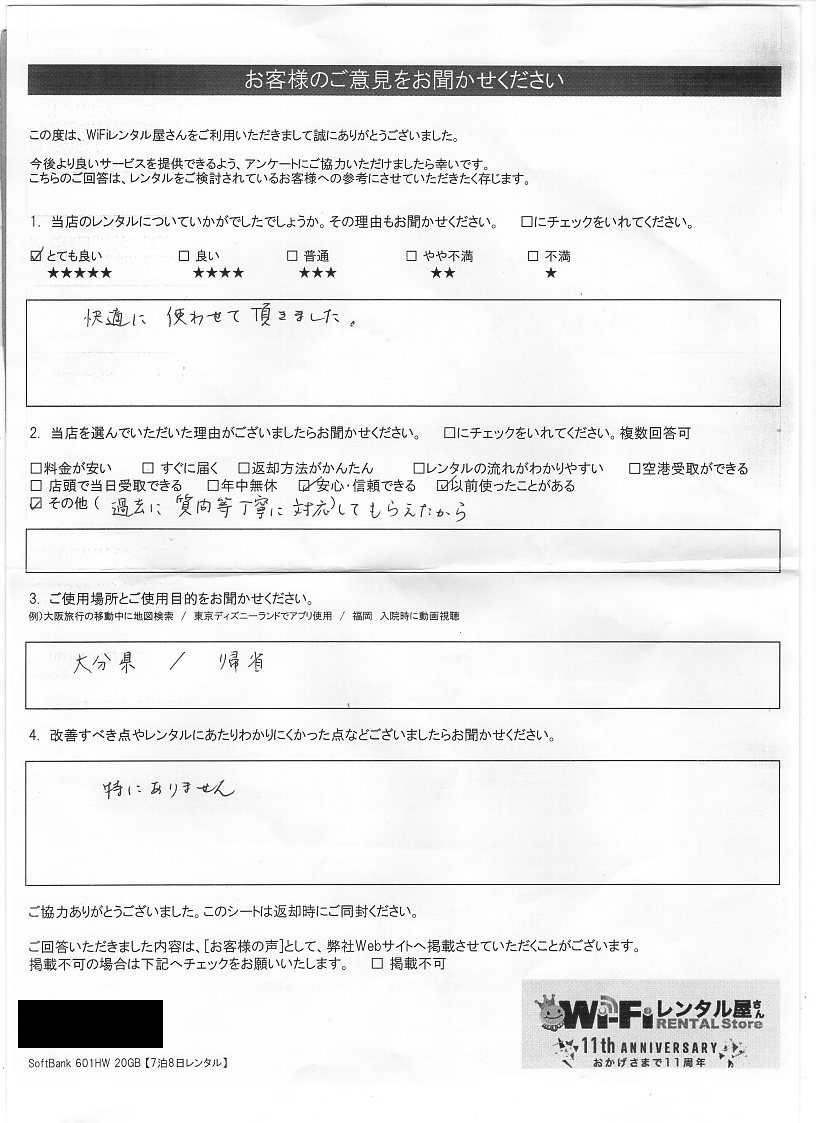 お客様のご意見をお聞かせください
この度は、WiFiレンタル屋さんをご利用いただきまして誠にありがとうございました。
今後より良いサービスを提供できるよう、アンケートにご協力いただけましたら幸いです。
こちらのご回答は、レンタルをご検討されているお客様への参考にさせていただきたく存じます。
1. 当店のレンタルについていかがでしたでしょうか。その理由もお聞かせください。 □にチェックをいれてください。
☑とても良い □ 良い □ 普通 □ やや不満 □ 不満
★★★★★ ★★★★ ★★★ ★★ ★
快適に 使わせて頂きました。
2. 当店を選んでいただいた理由がございましたらお聞かせください。 □にチェックをいれてください。複数回答可
□料金が安い □ すぐに届く □返却方法がかんたん □レンタルの流れがわかりやすい □空港受取ができる
□ 店頭で当日受取できる □年中無休 ☑安心・信頼できる ☑以前使ったことがある
☑ その他( 過去に 質問等丁寧に対応)してもらえたから
3. ご使用場所とご使用目的をお聞かせください。
例)大阪旅行の移動中に地図検索 / 東京ディズニーランドでアプリ使用 / 福岡 入院時に動画視聴
大分県 / 帰省
4. 改善すべき点やレンタルにあたりわかりにくかった点などございましたらお聞かせください。
特にありません
ご協力ありがとうございました。このシートは返却時にご同封ください。
ご回答いただきました内容は、[お客様の声]として、弊社Webサイトへ掲載させていただくことがございます。
掲載不可の場合は下記へチェックをお願いいたします。 □ 掲載不可
Wi-Fiレンタル屋さん
RENTAL Store
11th ANNIVERSARY
おかげさまで11周年
SoftBank 601HW 20GB【7泊8日レンタル】